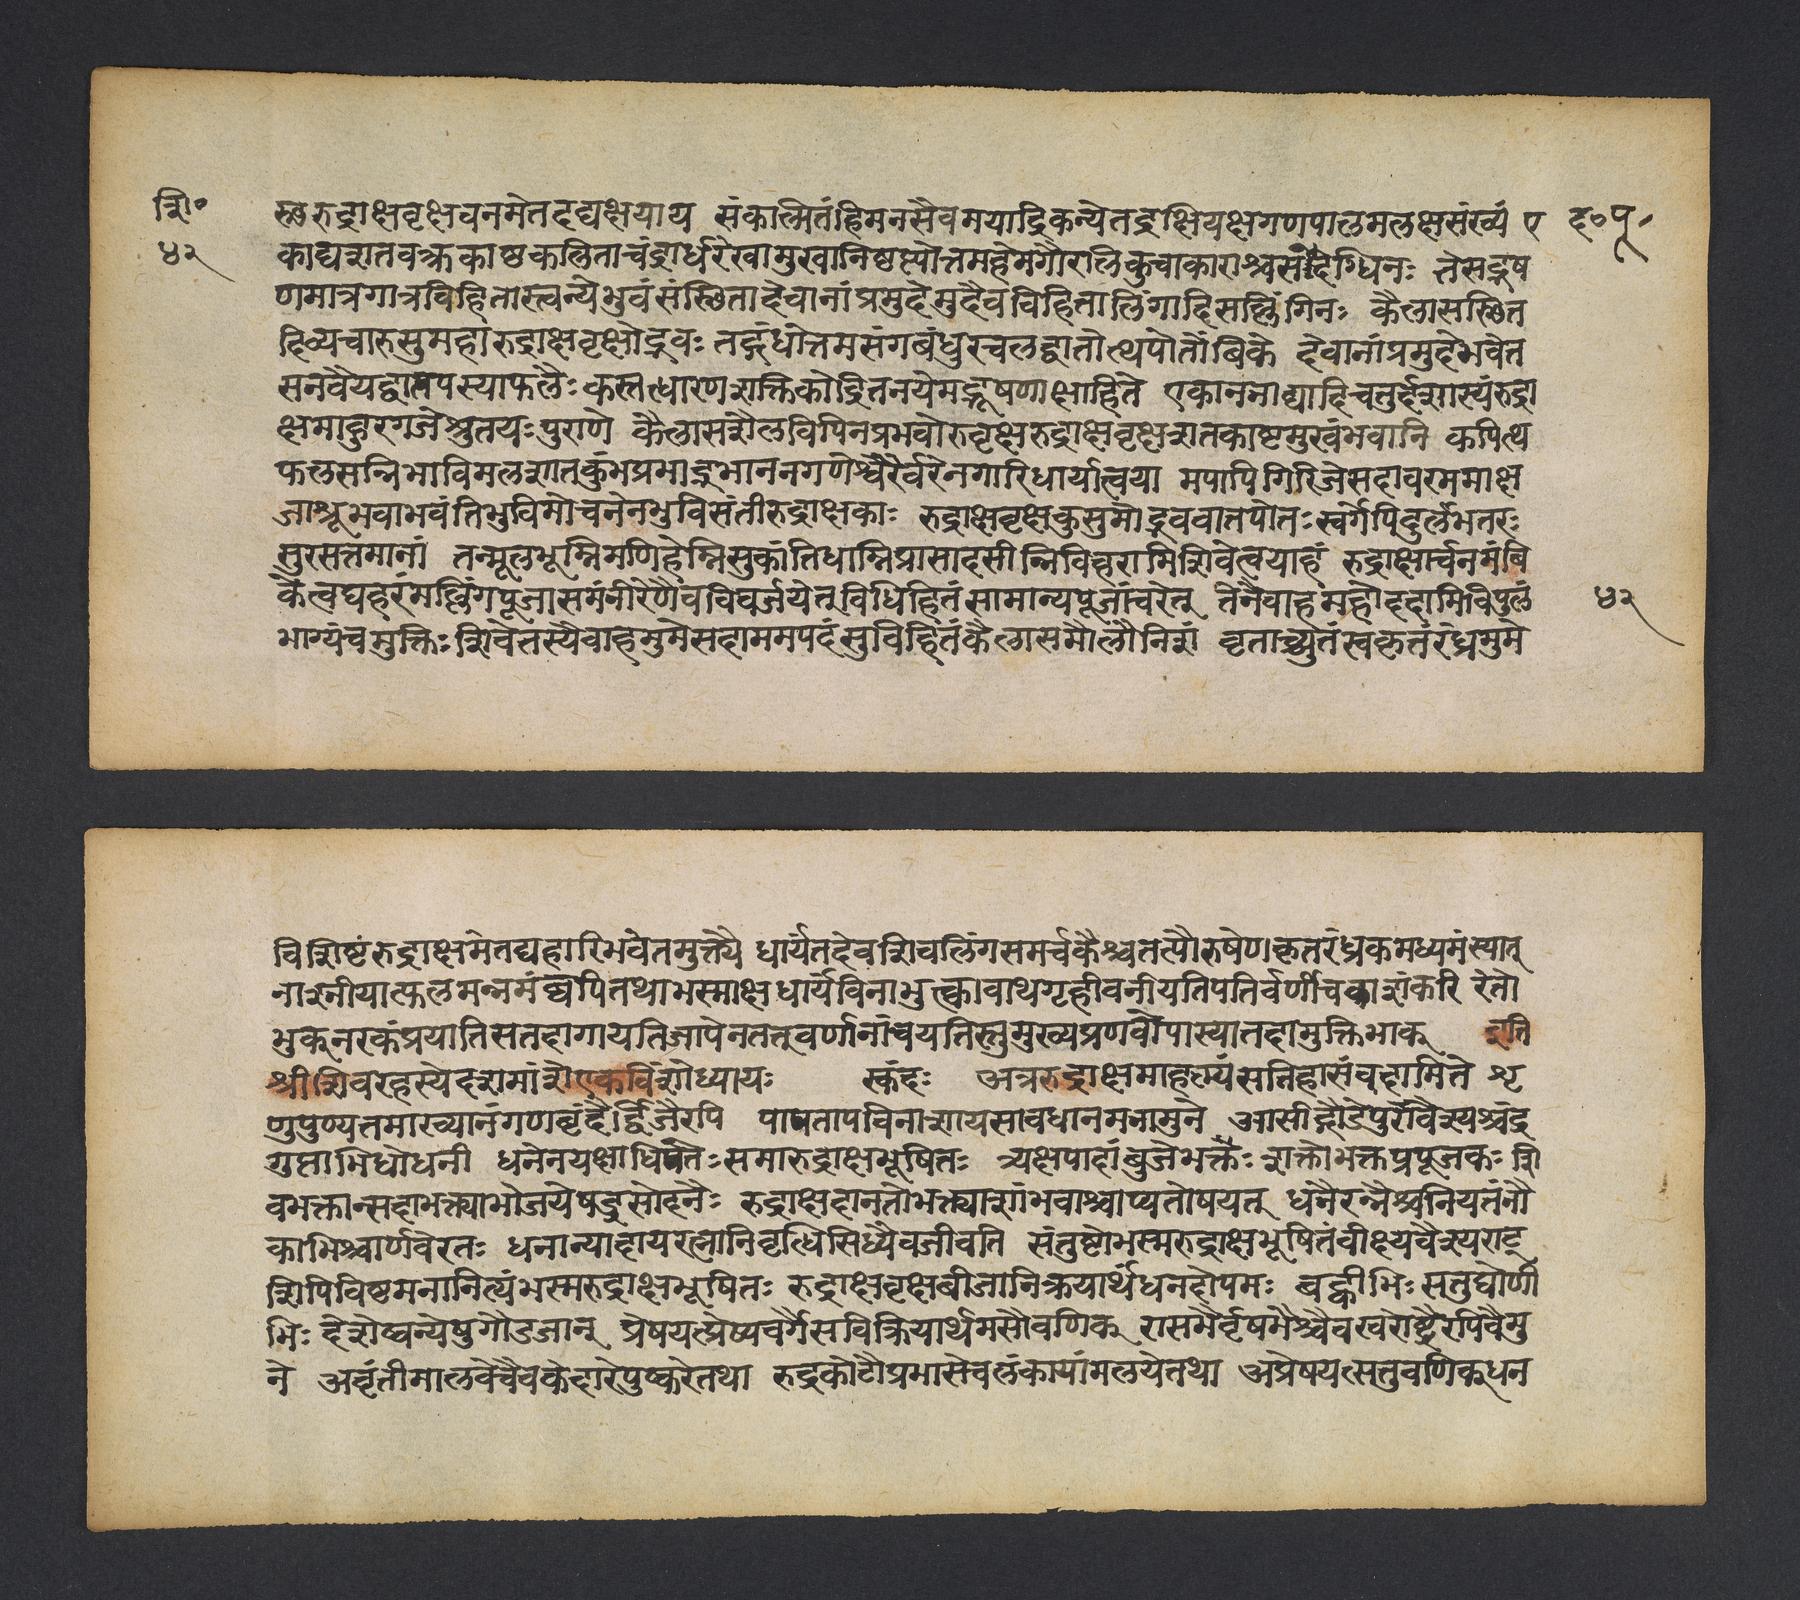 शि॰
४२
स्थरुद्राक्षवृक्षवनमेतदध्यक्षयाय संकाल्मितंहिमनसैवमयाद्रिकन्येतद्रक्षियक्षगणपालमलक्षसंख्यं ए
द॰पू॰
काद्यशतवक्त्रकाष्ठकलिताचंद्रार्धरेखामुखानिष्ठप्तोत्तमहेमगौरालिकुचाकाराश्च तेसद्भूष
णमात्रगात्रविहितास्त्वन्येभुवंसंस्थिता देवानांप्रमुदेमुदैवविहितालिंगाहिसल्लिंगिनः कैलासस्थित
दिव्यचारुसुमहारुद्राक्षवृक्षोद्भवः तद्गंधोत्तमसंगबंधुरचलद्वातोत्थपोतोंबिके देवानांप्रमुदेभवेत
सनवैयद्वातपस्याफलैः कस्तत्धारणशक्तिकोद्रितनयेमद्भूषणाक्षाहिते एकाननाद्याहिचतुर्दशास्यंरुद्रा
क्षमाहुरगजेश्रुतयःपुराणे कैलासशैलविपिनप्रभवोरुवृक्षरुद्राक्षवृक्षशतकाष्टमुखंभवानि कपित्थ
फलसन्निभाविमलशातकुंभप्रभाद्विभाननगणेश्वरैर्वरेनगारिधार्यात्वया मपापिगिरिजेसदावरममाक्ष
जाश्रूभवाभवंतिभुविमोचनेनभुविसंतीरुद्राक्षकाः रुद्राक्षवृक्षकुसुमोद्भववातपोतः स्वर्गेपिदुर्लभतरः
सुरसत्तमानां तन्मूलभूम्निमणिहेम्निसुकांतिधाम्निप्रासादसीम्निविहरामिशिवेत्वयाहं रुद्राक्षार्चनमंबि
केत्वघहरंमल्लिंगपूजासमंनीरेणैवविघर्जयेत्तुविधिहितंसामान्यपूजांचरेत् तेनैवाहमहोददामिविपुलं
४२
भाग्यंचमुक्तिःशिवेतस्यैवाहमुमेसदाममपदंसुविहितंकैलासमौलौनिशं वृताच्च्युतंस्वकृतरंध्रमुमे
विशिष्टंरुद्राक्षमेतद्यहारिभवेतमुक्त्यै धार्यंतदेवशिवलिंगसमर्चकैश्चतत्पौरुषेणकृतरंध्रकमध्यमंस्यात्
नाश्नीयात्फलमन्नमंब्वपितथाभस्माक्षधार्यंविनाभुक्त्कावाथगृहीवनीयतिपतिर्वर्णीच रेतो
भुक्नरकंप्रयातिसतदागायतिजापेनतत्वर्णानांचयतिस्तुमुख्यप्रणवोपास्यातदामुक्तिभाक् इति
श्रीशिवरहस्येदशमांशेएकविंशोध्यायः स्कंदः अत्ररुद्राक्षमाहात्म्यंसेतिहासंवदामिते शृ
णुपुण्यतमाख्यानंगणवृंदैर्द्विजैरपि पापतापविनाशायसावधानमनामुने आसीद्गौडेपुरेवैश्यश्चंद्र
गुप्ताभिधोधनी धनेनयक्षाधिपतेःसमारुद्राक्षभूषितः त्र्यक्षपादांबुजेभक्तैःशक्तोभक्तप्रपूजकः शि
वभक्तान्सदाभक्त्याभोजयेषड्रसोदनैः रुद्राक्षदानतोभक्त्याशांभवाश्चाप्यतोषयत् धनैरन्नैश्चनियतंनौ
काभिश्चार्णवेरतः धनान्यादायरत्नानिवृत्धिसिध्यैवजीवति संतुष्टोभस्मरुद्राक्षभूषितंवीक्ष्यवैश्यराट्
शिपिविष्टमनानित्यंभस्मरुद्राक्षभूषितः रुद्राक्षवृक्षबीजानिक्रयार्थंधनदोपमः बह्वीभिःसतुघोणी
भिः देशेष्वन्येषुगौडजान् प्रेषयत्प्रेष्यवर्गैसविक्रियार्थमसौवणिक् रासभैर्वृषभैश्चैवखरोष्ट्रैरपिवैमु
ने अवंतीमालवेचैवकेदारेपुष्करेतथा रुद्रकोटौप्रभासेचलंकायांमलयेतथा अप्रेषयत्सतुवणिक्धन